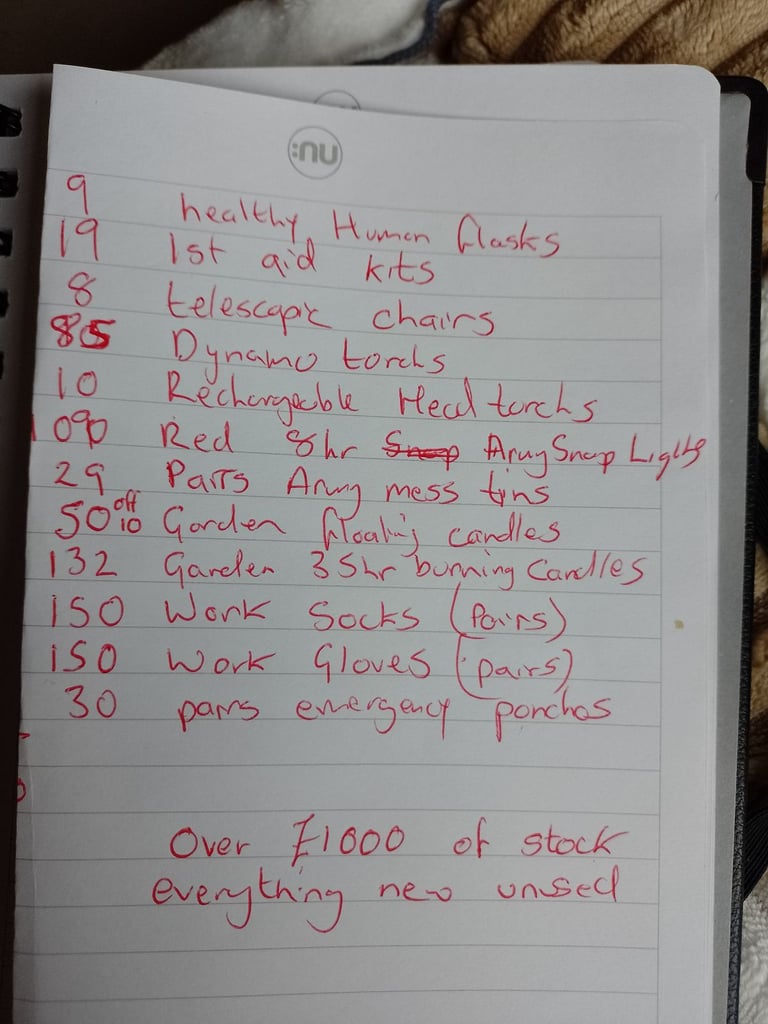 :nu
9 healthy Human flasks
19 1st aid kits
8 telescopic chairs
85 Dynamo torchs
10 Rechargeable Head torchs
1090 Red 8hr Snap Army Snap Lights
29 Pairs Army mess tins
50 off 10 Garden floating candles
132 Garden 35hr burning Candles
150 Work Socks (Pairs)
150 Work Gloves (pairs)
30 pairs emergency ponchos
Over £1000 of stock
everything new unused